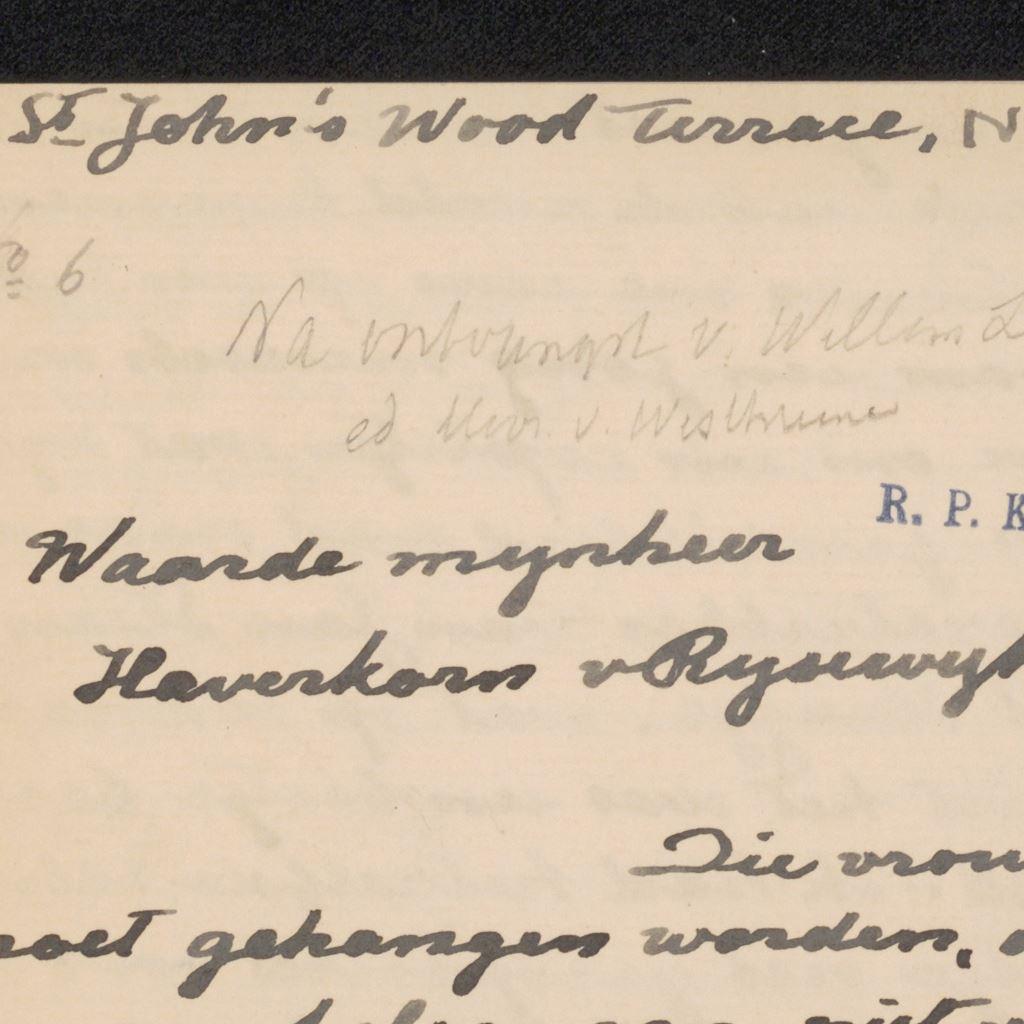 St John's Wood Terrace, N
No 6
Na ontvangst v. Willem L
ed Mevr. v. Westhreene
R. P. K
Waarde mynheer
Haverkorn v Rysewyk
Die vrou
moet gehangen worden,